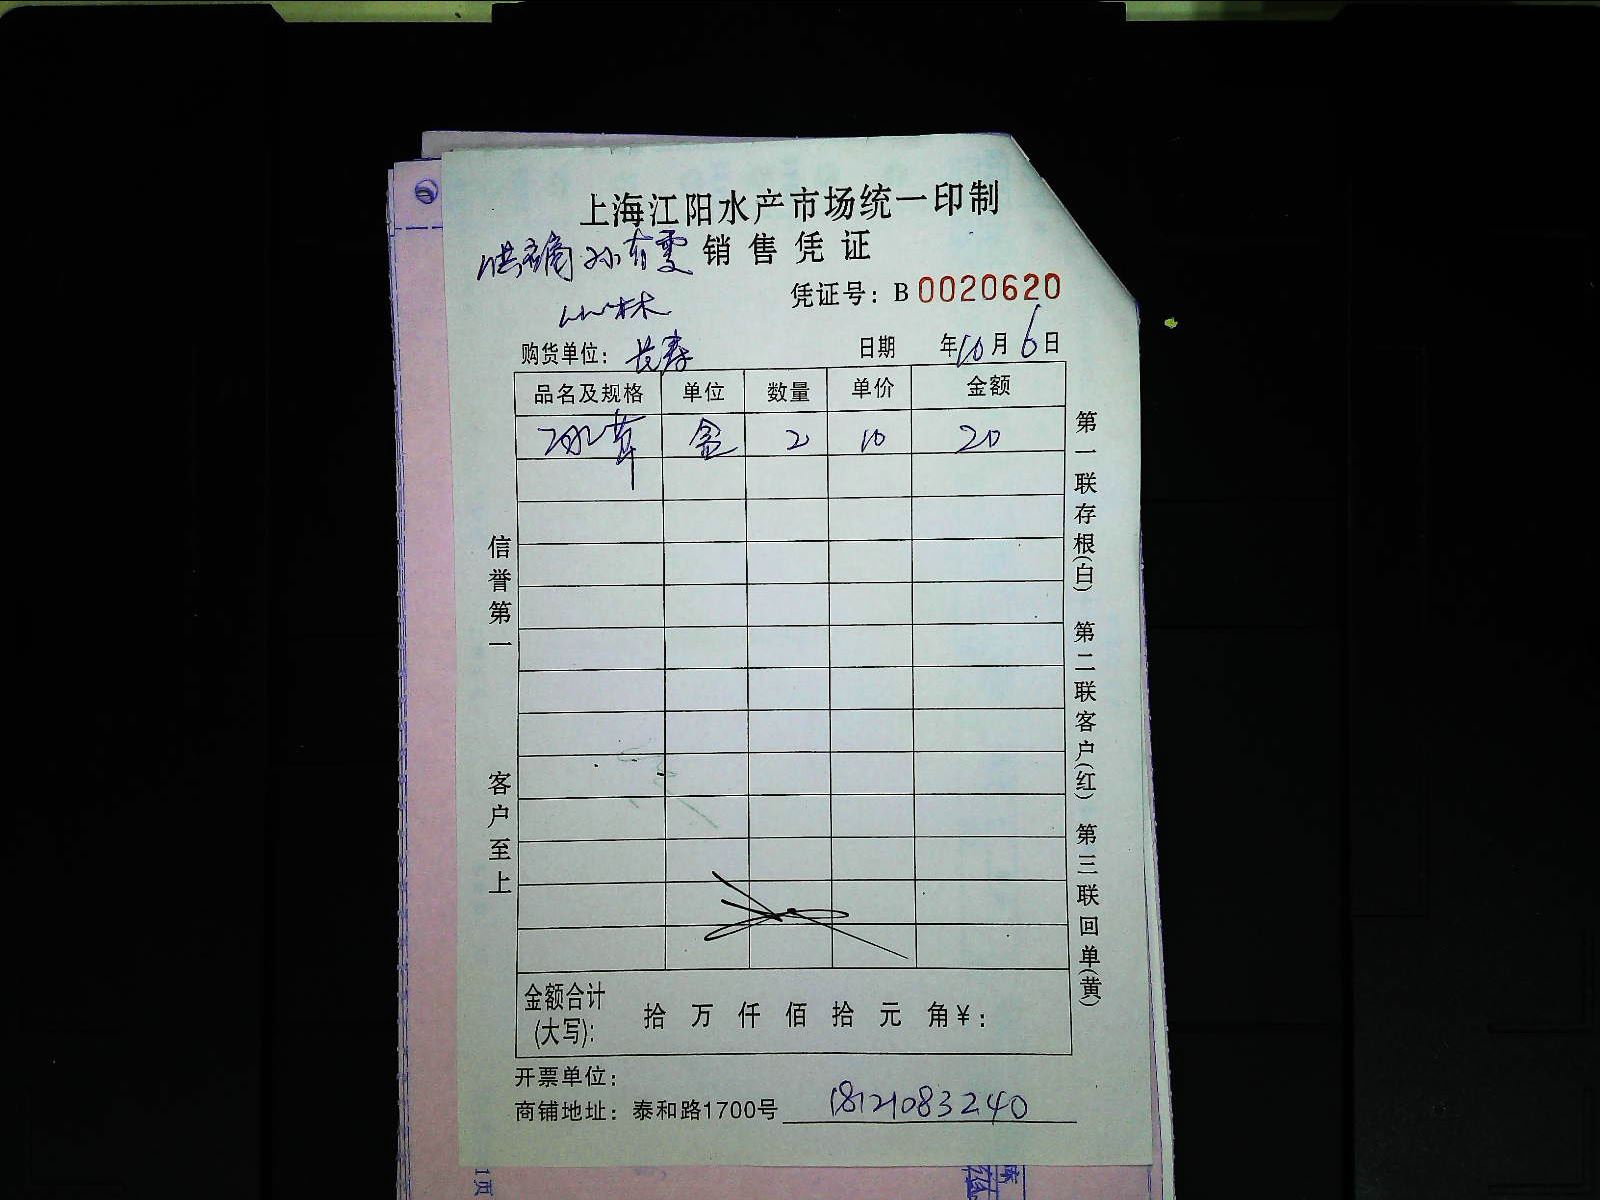 上海江阳水产市场统一印制
销售凭证
凭证号：B 0020620
购货单位：长寿 日期 年10月6日
品名及规格 单位 数量 单价 金额
盒 2 10 20
信誉第一 客户至上
第一联存根(白) 第二联客户(红) 第三联回单(黄)
金额合计(大写)： 拾 万 仟 佰 拾 元 角￥：
开票单位：
商铺地址：泰和路1700号 18121083240